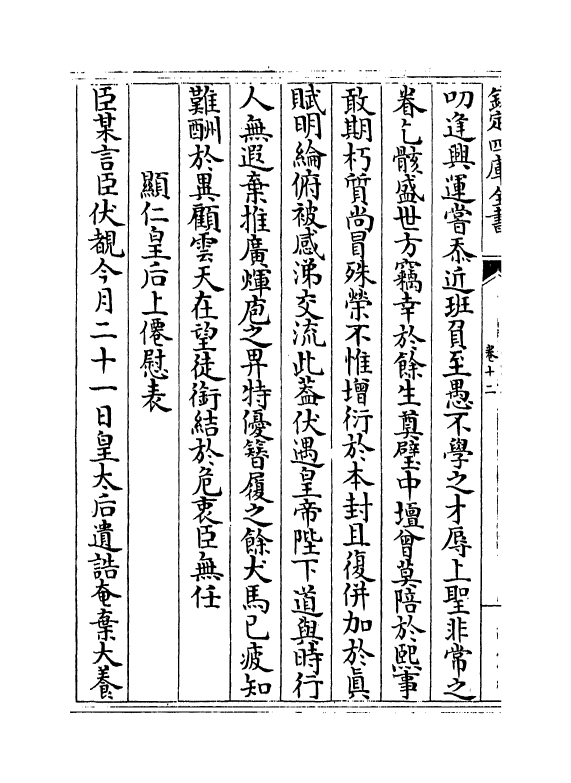 欽定四庫全書
卷十二
叨逢興運嘗忝近班負至愚不學之才辱上聖非常之
眷乞骸盛世方竊幸於餘生奠璧中壇曾莫陪於熙事
敢期朽質尚冒殊榮不惟增衍於本封且復併加於眞
賦明綸俯被感涕交流此葢伏遇皇帝陛下道與時行
人無遐棄推廣煇庖之畀特優簪履之餘犬馬已疲知
難酬於異顧雲天在望徒銜結於危衷臣無任
顯仁皇后上僊慰表
臣某言臣伏覩今月二十一日皇太后遺誥奄棄大養